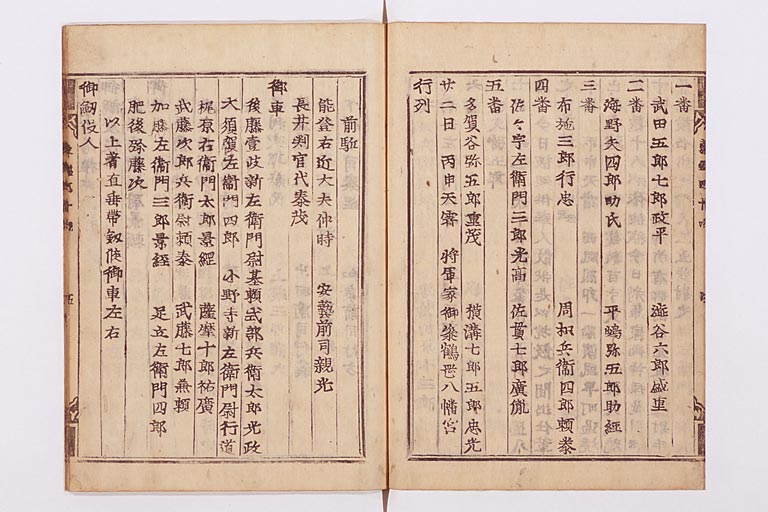 一番
武田五郎七郎政平　澁谷六郎盛重
二番
海野矢四郎助氏　平嶋弥五郎助経
三番
布施三郎行忠　周枳兵衛四郎頼泰
四番
佐々宇左衛門三郎光高　佐貫七郎廣胤
五番
多賀谷弥五郎重茂　横溝七郎五郎忠光
廿二日丙申天霽　将軍家御参鶴岳八幡宮
行列
前駈
能登右近大夫仲時　安藝前司親光
長井判官代泰茂
御車
後藤壹岐新左衛門尉基頼　式部兵衛太郎光政
大須賀左衛門四郎　小野寺新左衛門尉行道
梶原右衛門太郎景綱　薩摩十郎祐廣
武藤次郎兵衛尉頼泰　武藤七郎兼頼
加藤左衛門三郎景經　足立左衛門四郎
肥後弥藤次
以上着直垂帶釼候御車左右
御釼役人